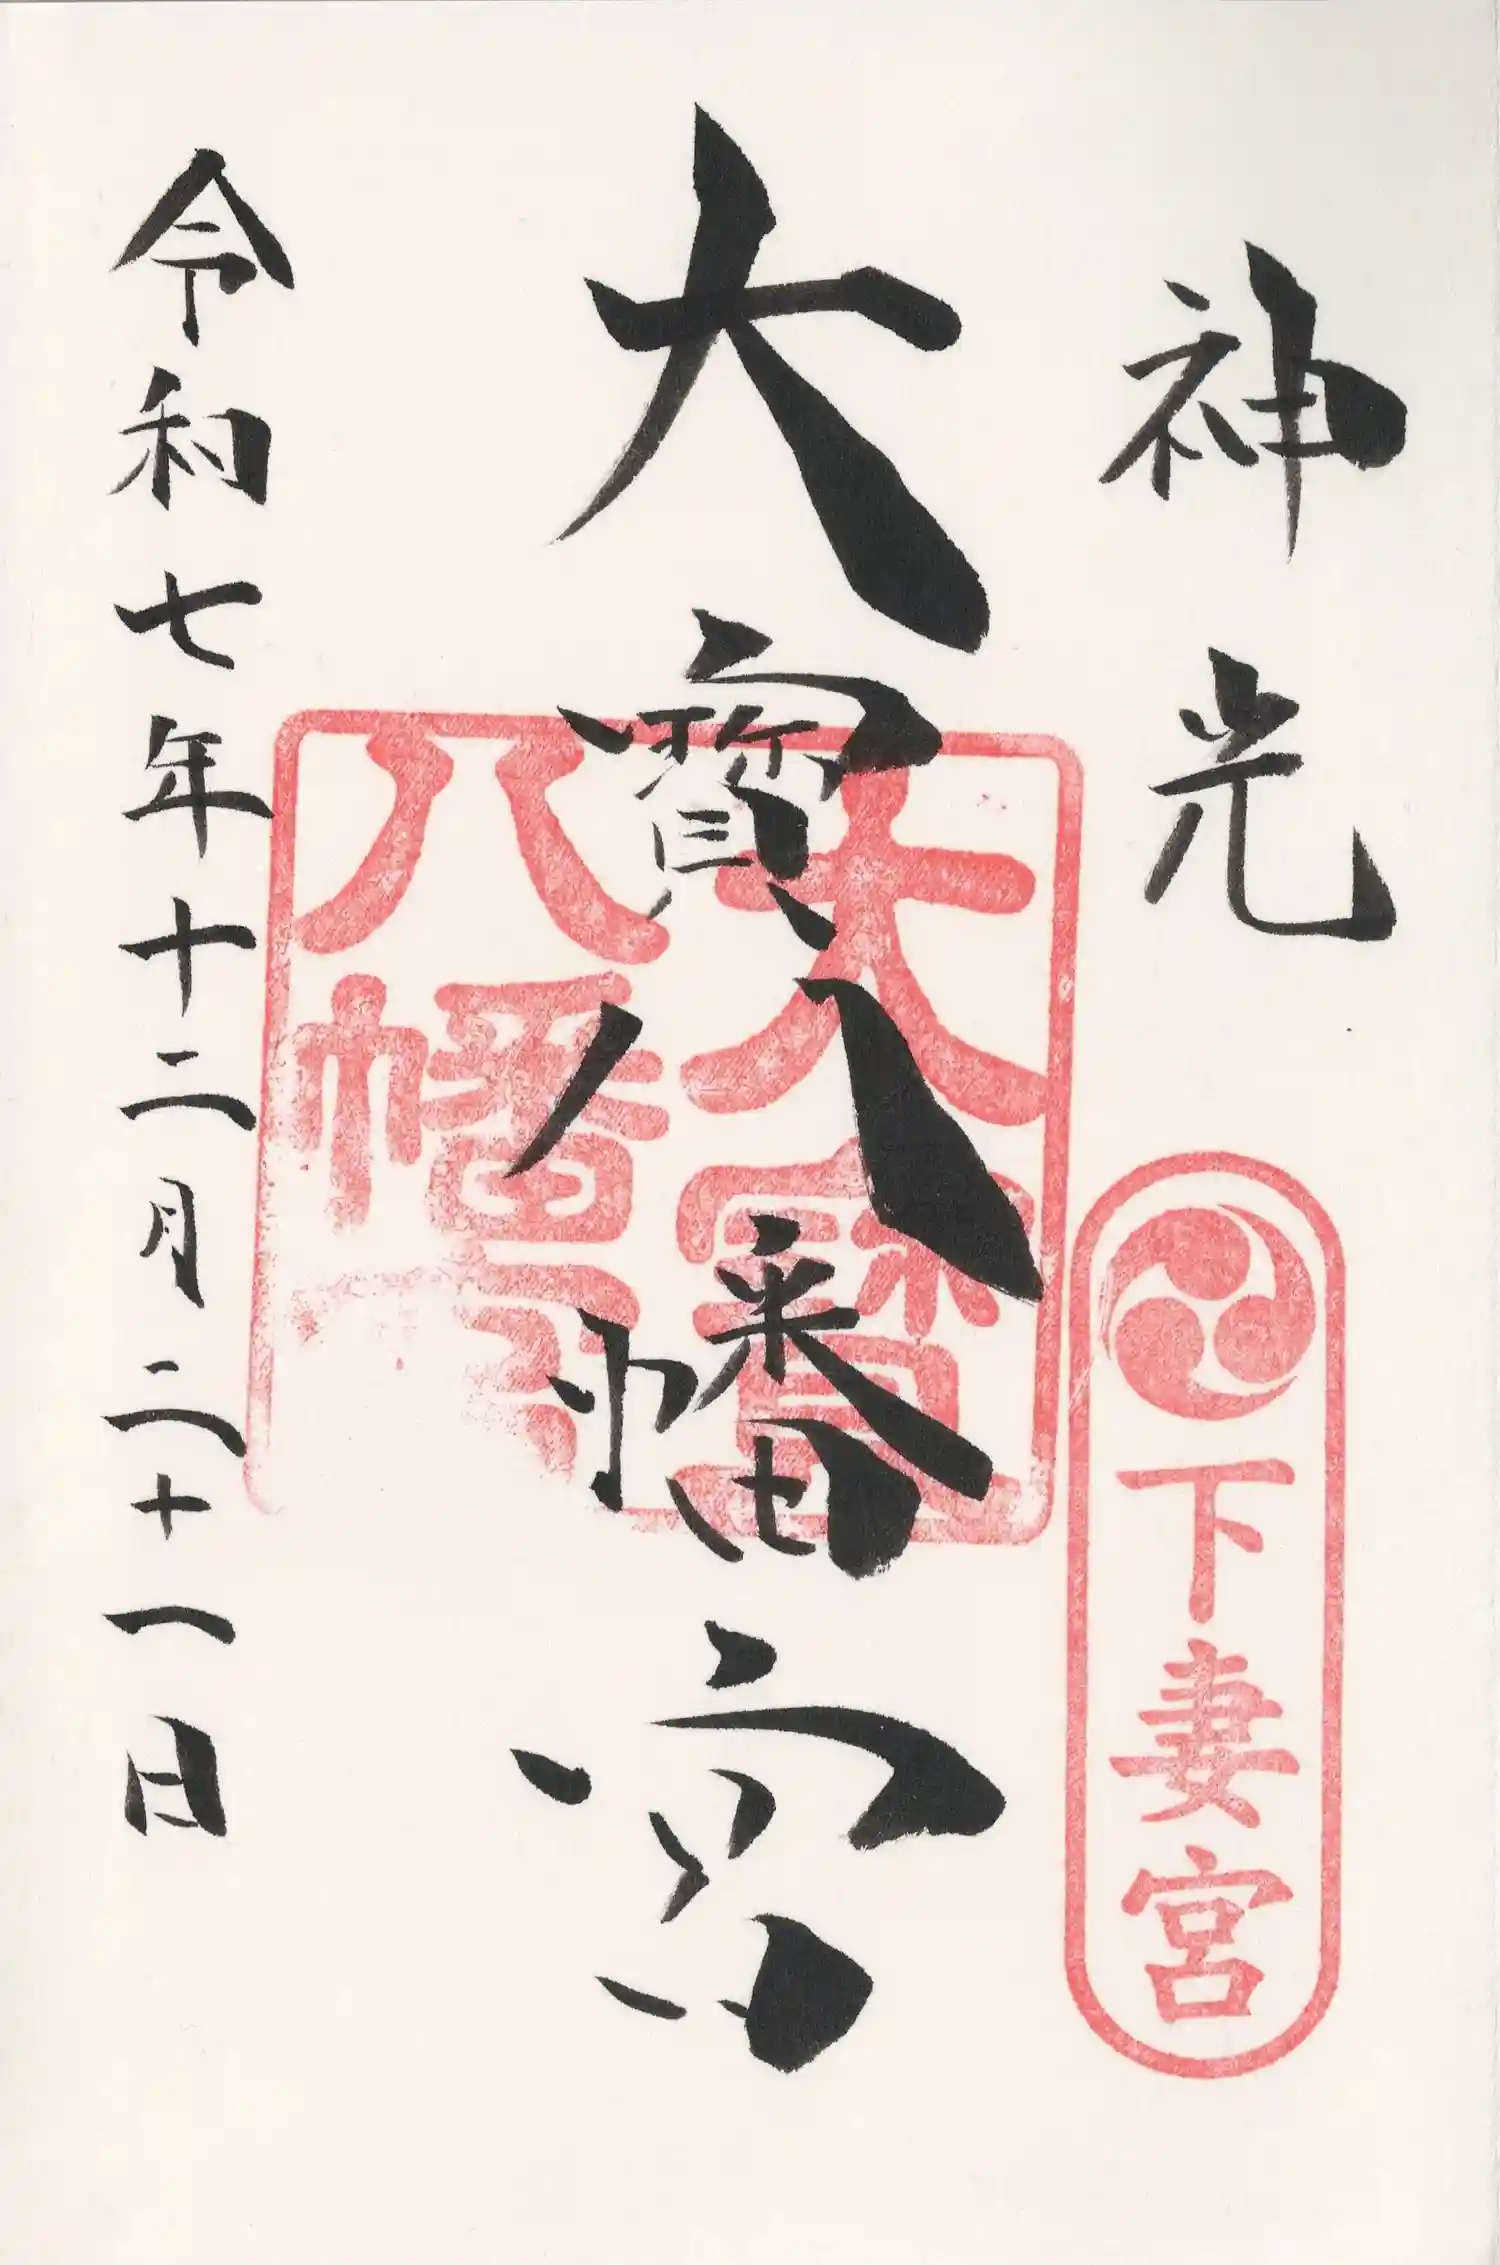 神光
下妻宮
大寶八幡宮
大寶
八幡宮
令和七年十二月二十一日